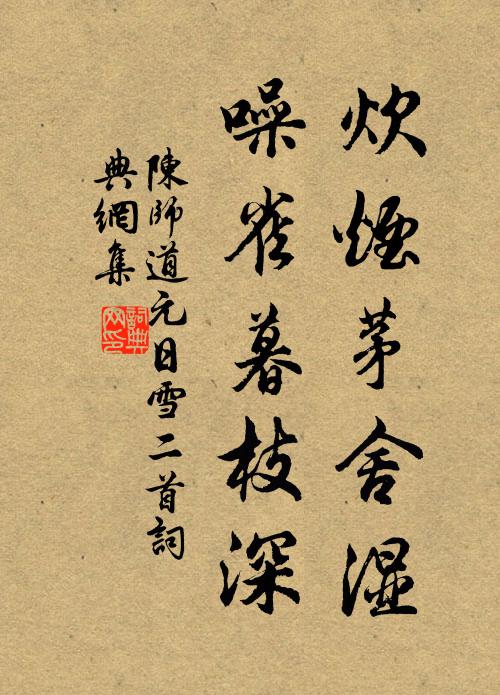 炊煙茅舍濕
噪雀暮枝深
陳師道元日雪二首詞
典網集
詞典
网印